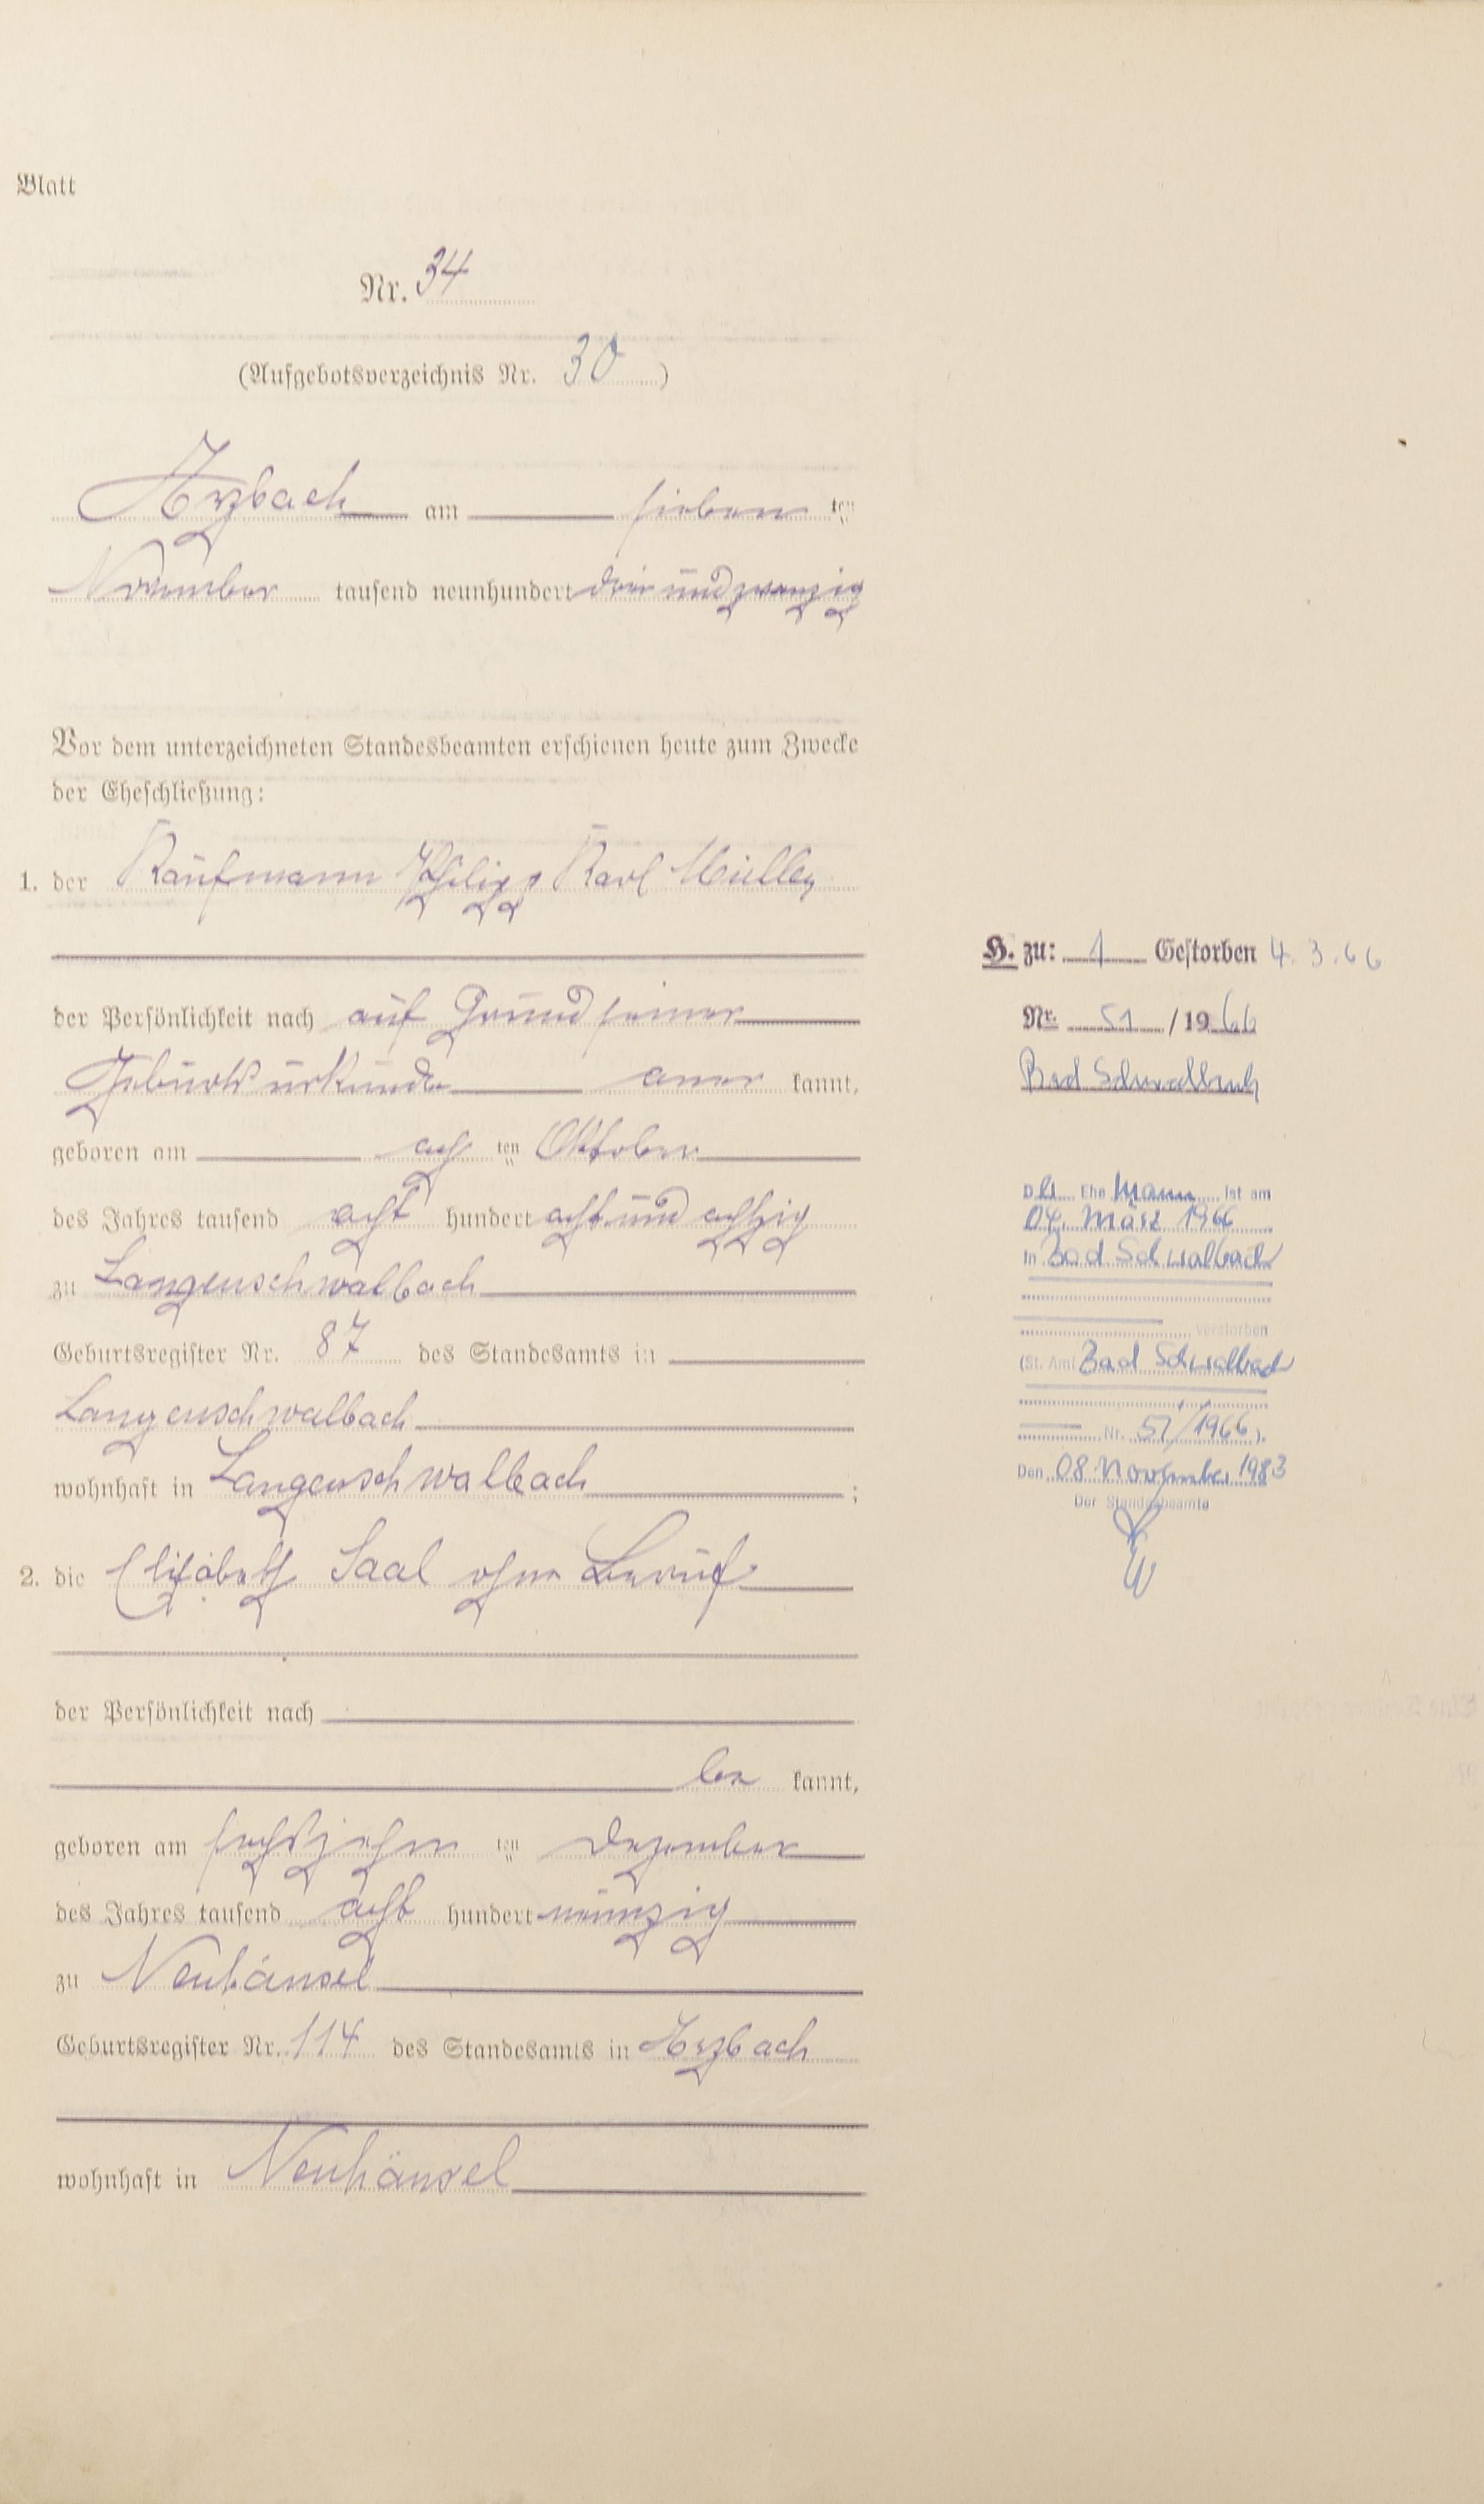 Blatt
Nr. 34
(Aufgebotsverzeichnis Nr. 30)
Arzbach am sieben ten
November tausend neunhundert drei und zwanzig
Vor dem unterzeichneten Standesbeamten erschienen heute zum Zwecke
der Eheschließung:
1. der Kaufmann Philipp Karl Müller
der Persönlichkeit nach auf Grund seiner
Geburtsurkunde aner kannt,
geboren am ach ten Oktober
des Jahres tausend acht hundert acht und achzig
zu Langenschwalbach
Geburtsregister Nr. 87 des Standesamts in
Langenschwalbach
wohnhaft in Langenschwalbach;
2. die Elisabeth Saal ohne Beruf
der Persönlichkeit nach
be kannt,
geboren am sechszehn ten Dezember
des Jahres tausend acht hundert neunzig
zu Neuhäusel
Geburtsregister Nr. 114 des Standesamts in Arzbach
wohnhaft in Neuhäusel
H. zu: 1 Gestorben 4.3.66
Nr. 51 / 1966
Bad Schwalbach
Der Ehe Mann ist am
04. März 1966
in Bad Schwalbach
verstorben
(St. Amt Bad Schwalbach
Nr. 51/1966).
Den 08. November 1983
Der Standesbeamte